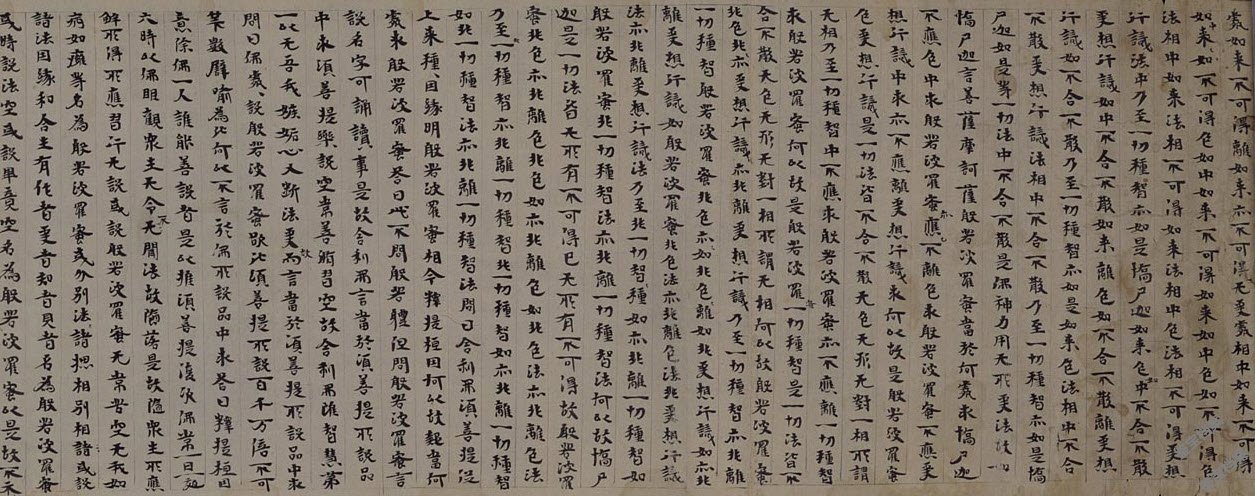 處如來不可得離如亦不可得无受相中如來不可得
如來如不可得色如中如來不可得如來如中色如不可得色
法相中如來法相不可得如來法相中色法相不可得受想
行識法中乃至一切種智亦如是憍尸迦如來色中不合不散
受想行識如中不合不散如來離色如不合不散離受想
行識如不合不散乃至一切種智亦如是如來色法相中不合
不散受想行識法相中不合不散乃至一切種智亦如是憍
尸迦如是等一切法中不合不散是佛神力用无所受法故
憍尸迦言善薩摩訶薩般若波羅蜜當於何處求憍尸迦
不應色中求般若波羅蜜亦應不離色求般若波羅蜜不受
想行識中求亦不應離受想行識求何以故是般若波羅蜜
色受想行識是一切法皆不合不散无色无形无對一相所謂
无相乃至一切種智中不應求般若波羅蜜亦不應離一切種智
求般若波羅蜜何以故是般若波羅蜜一切種智是一切法皆不
合不散无色无形无對一相所謂无相何以故般若波羅蜜
非色非亦受想行識亦非離受想行識乃至一切種智亦非
一切種智般若波羅蜜非色如亦非離色如非受想行識如亦非
離受想行識如般若波羅蜜非色法亦非離色法非受想行識
法亦非離受想行識法乃至非一切種智如亦非離一切種智如
般若波羅蜜非一切種智法亦非離一切種智法何以故憍尸
迦是一切法皆无所有不可得已无所有不可得故般若波羅
蜜非色亦非離色非色如亦非離色如非色法亦非離色法
乃至非一切種智亦非離一切種智非一切種智如亦非離一切種智
如非一切種智法亦非離一切種智法問曰舍利弗須菩提從
上來種種因緣明般若波羅蜜相今釋提桓因何以故難當何
處求般若波羅蜜答曰此不問般若體但問般若波羅蜜言
說名字可誦讀事是故舍利弗言當於須菩提所說品
中求須菩提樂說空常善脩習空故舍利弗雖智慧第
一以无吾我嫉妬心又斷法愛故而言當於須菩提所說品中求
問曰佛處處說般若波羅蜜欲比須菩提所說百千万倍不可
算數譬喻為比何以不言於佛所說品中求答曰釋提桓因
意除佛一人誰能善說者是以推須菩提復次佛常一日一夜
六時以佛眼觀眾生无令不聞法故墮落是故隨眾生所應
解所得所應習行无說或說般若波羅蜜无常苦空无我如
病如癰等名為般若波羅蜜或分別法諸揔相別相諸或說
諸法因緣和合生有作者受者知者見者名為般若波羅蜜
或時說法空或說畢竟空名為般若波羅蜜以是故不示